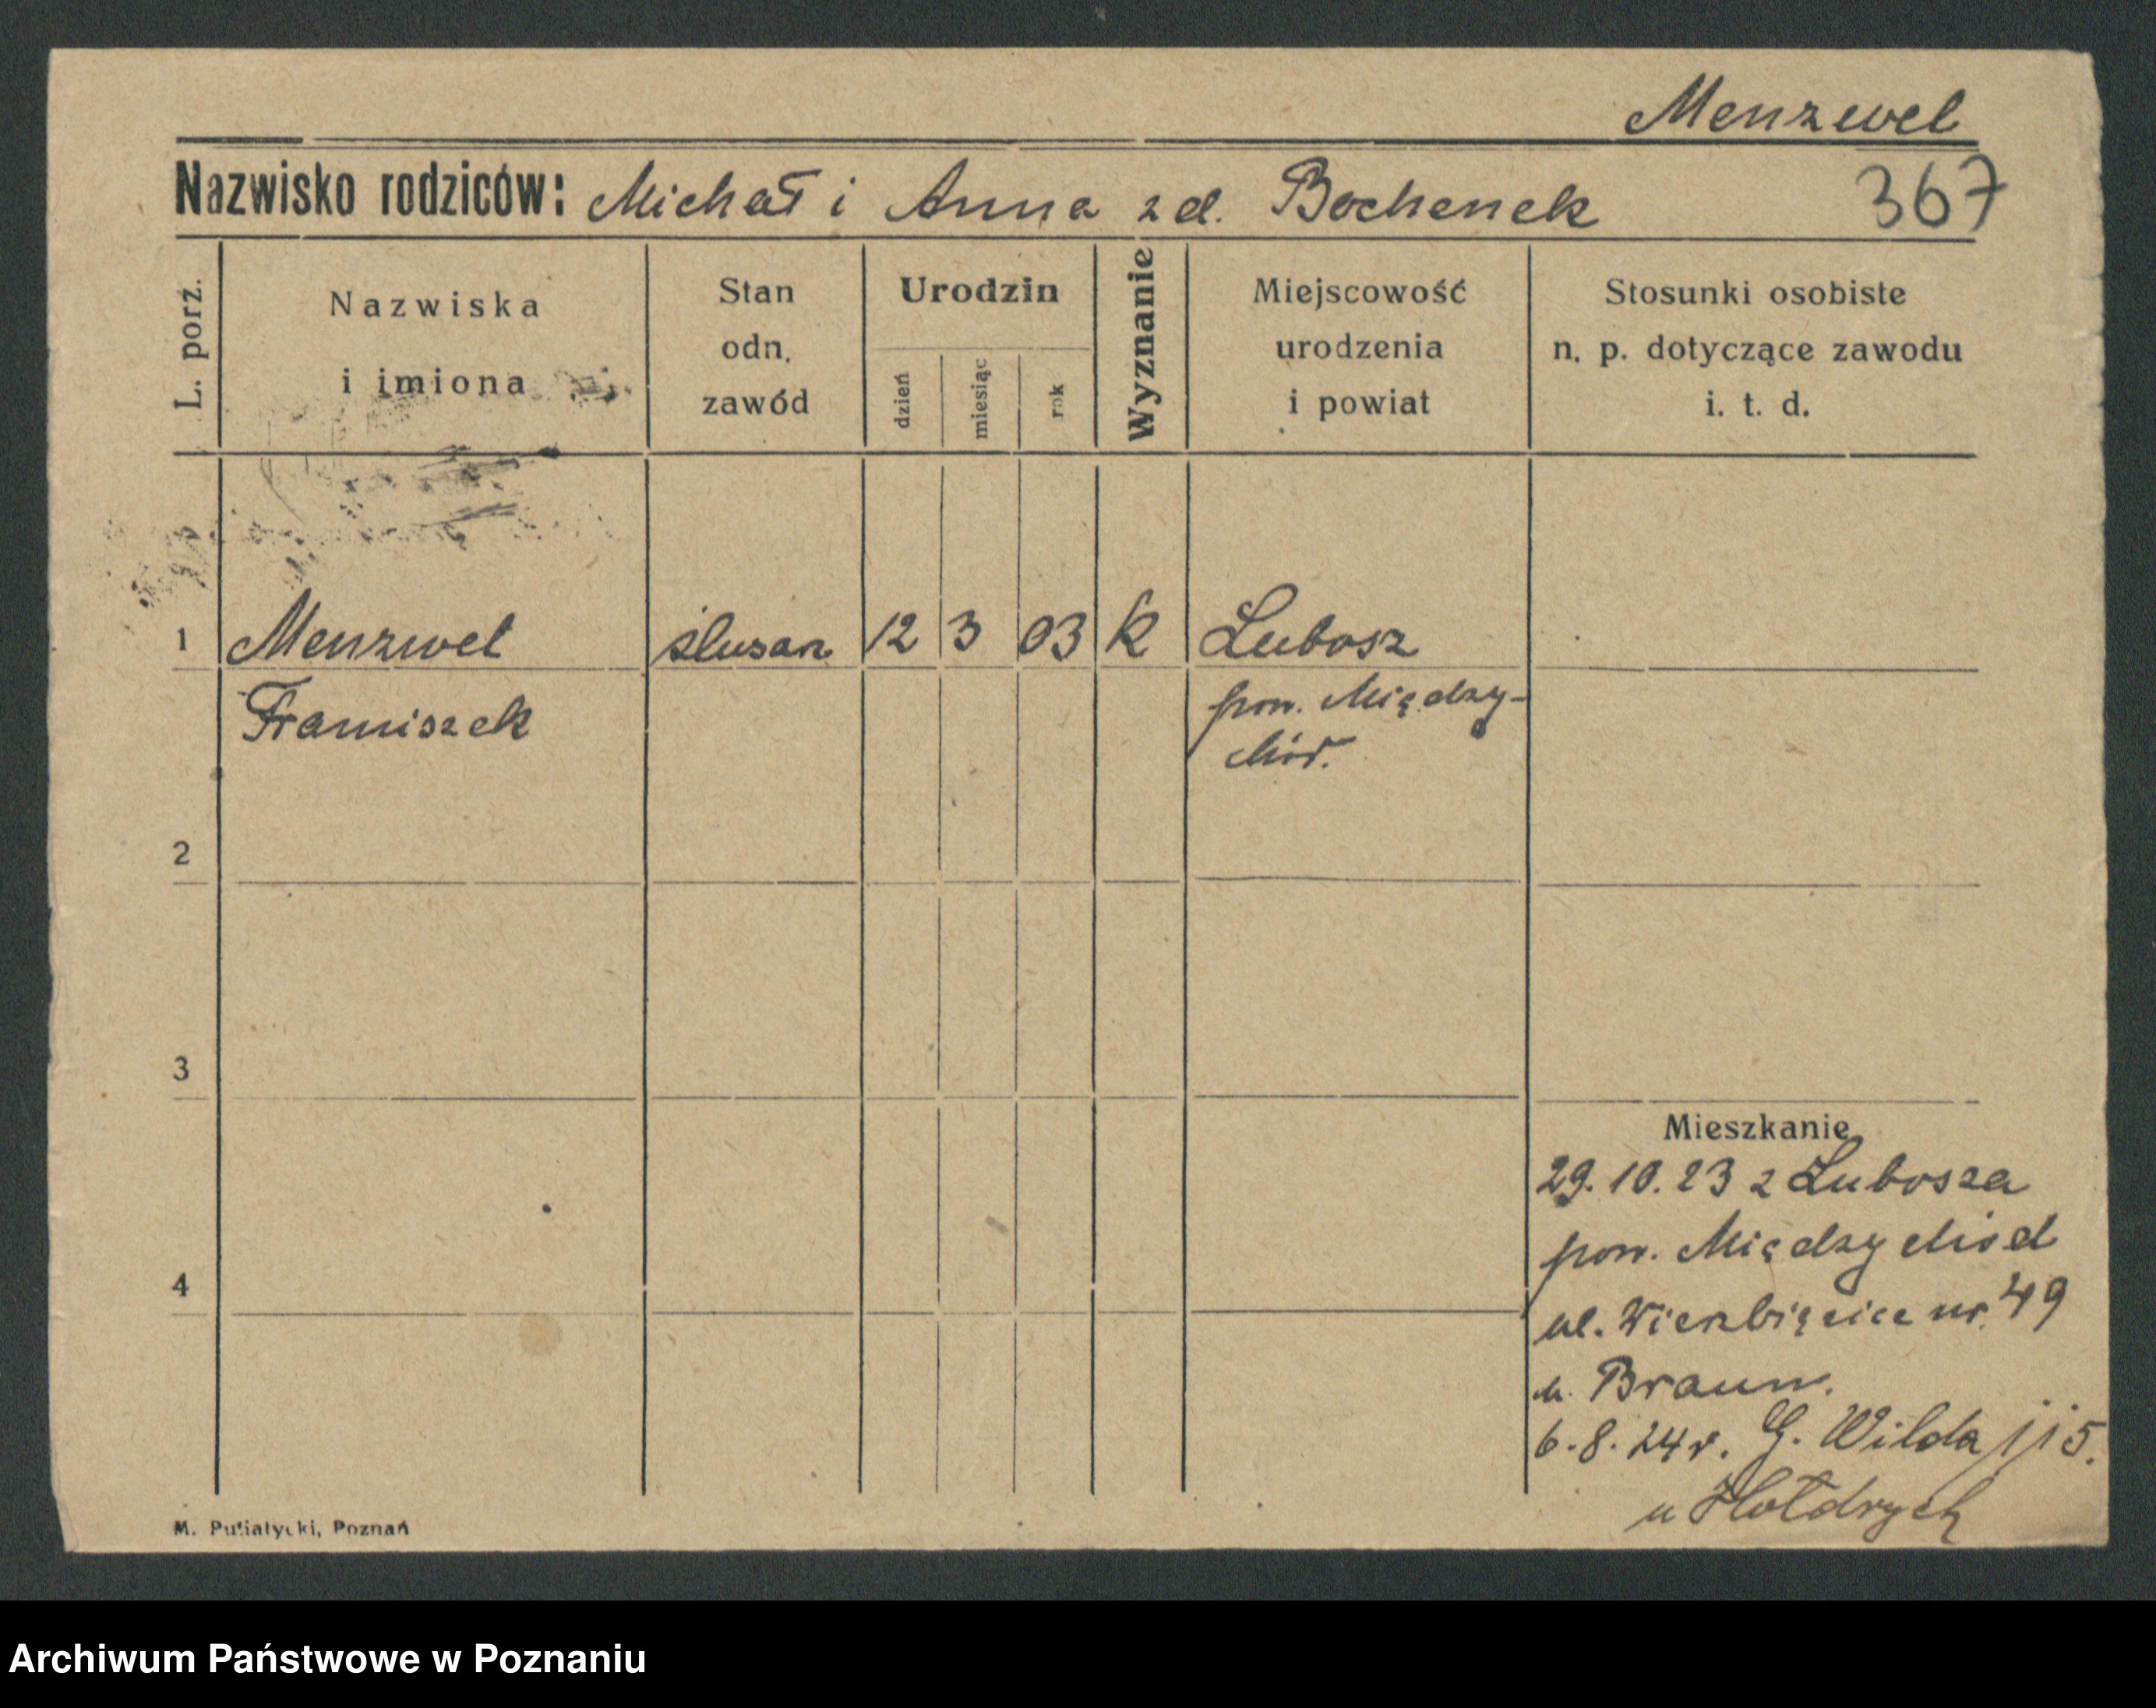 Menzwel
Nazwisko rodziców: Michał i Anna z d. Bochenek
367
L. porz.
Nazwiska
i imiona
Stan
odn.
zawód
Urodzin
dzień
miesiąc
rok
Wyznanie
Miejscowość
urodzenia
i powiat
Stosunki osobiste
n. p. dotyczące zawodu
i. t. d.
1 Menzwel ślusarz 12 3 03 k Lubosz
Franciszek pow. Między-
chód.
2
3
Mieszkanie
29.10.23 z Lubosza
pow. Międzychód
4
ul. Wierzbięcice nr. 49
u. Braun.
6.8.24r. G. Wilda 115.
u Hołdrych
M. Putiatycki, Poznań
Archiwum Państwowe w Poznaniu